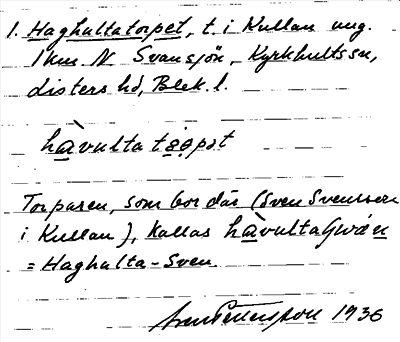 1. Haghultatorpet, t. i Kullan ung.
1 km. N Svansjön, Kyrkhults sn,
Listers hd, Blek. l.
hàvultatǫrpət
Torparen, som bor där (Sven Svensson
i Kullan), kallas hàvulta
= Haghulta-Sven
1936